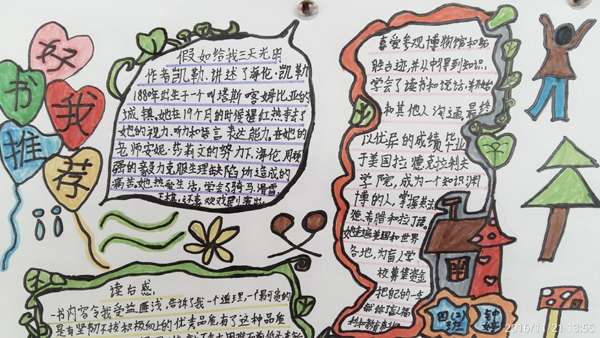 好书
我
推
荐
假如给我三天光明
作者凯勒.讲述了海伦.凯勒
1880年出生于一个叫塔斯喀姆比亚的
城镇,她在19个月的时候猩红热夺去了
她的视力、听力和语言表达能力,在她的
老师安妮.莎莉文的努力下,海伦用顽
强的毅力克服生理缺陷所造成的
痛苦,她热爱生活,学会了骑马、滑雪、
下棋,还喜欢戏剧演出
喜爱参观博物馆和名
胜古迹,并从中得到知识,
学会了读书和说话,并开始
和其他人沟通.最终
以优异的成绩毕业
于美国拉德克拉制夫
学院,成为一个知识渊
博的人,掌握英法
德、希腊和拉丁语,
她走遍美国和世界
各地,为盲人学
校募集资金
把自己的一生
读后感:
一书内容令我受益匪浅,告诉了我一个道理,一个最可造的
是有坚韧不拔积极向上的优秀品质,有了这种品质
四(3)班
钟婷
2016/11/21 13:55